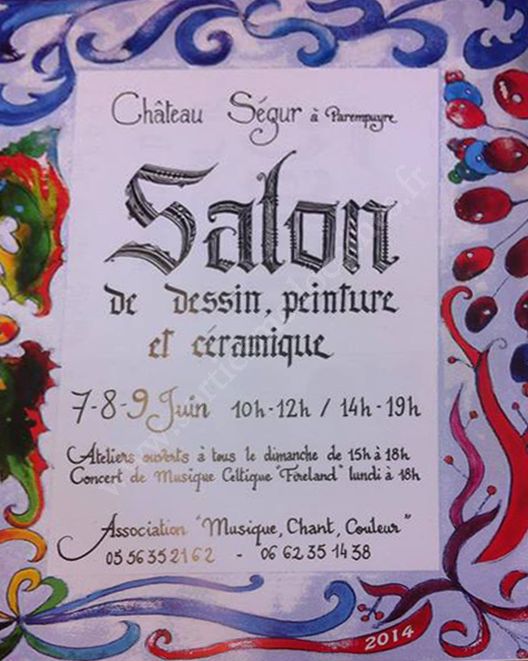 Château Ségur à Parempuyre
Salon
de dessin, peinture
et céramique
7-8-9 Juin 10h-12h / 14h-19h
Ateliers ouverts à tous le dimanche de 15h à 18h
Concert de Musique Celtique "Foreland" lundi à 18h
Association "Musique, Chant, Couleur"
05 56 35 21 62 - 06 62 35 14 38
2014